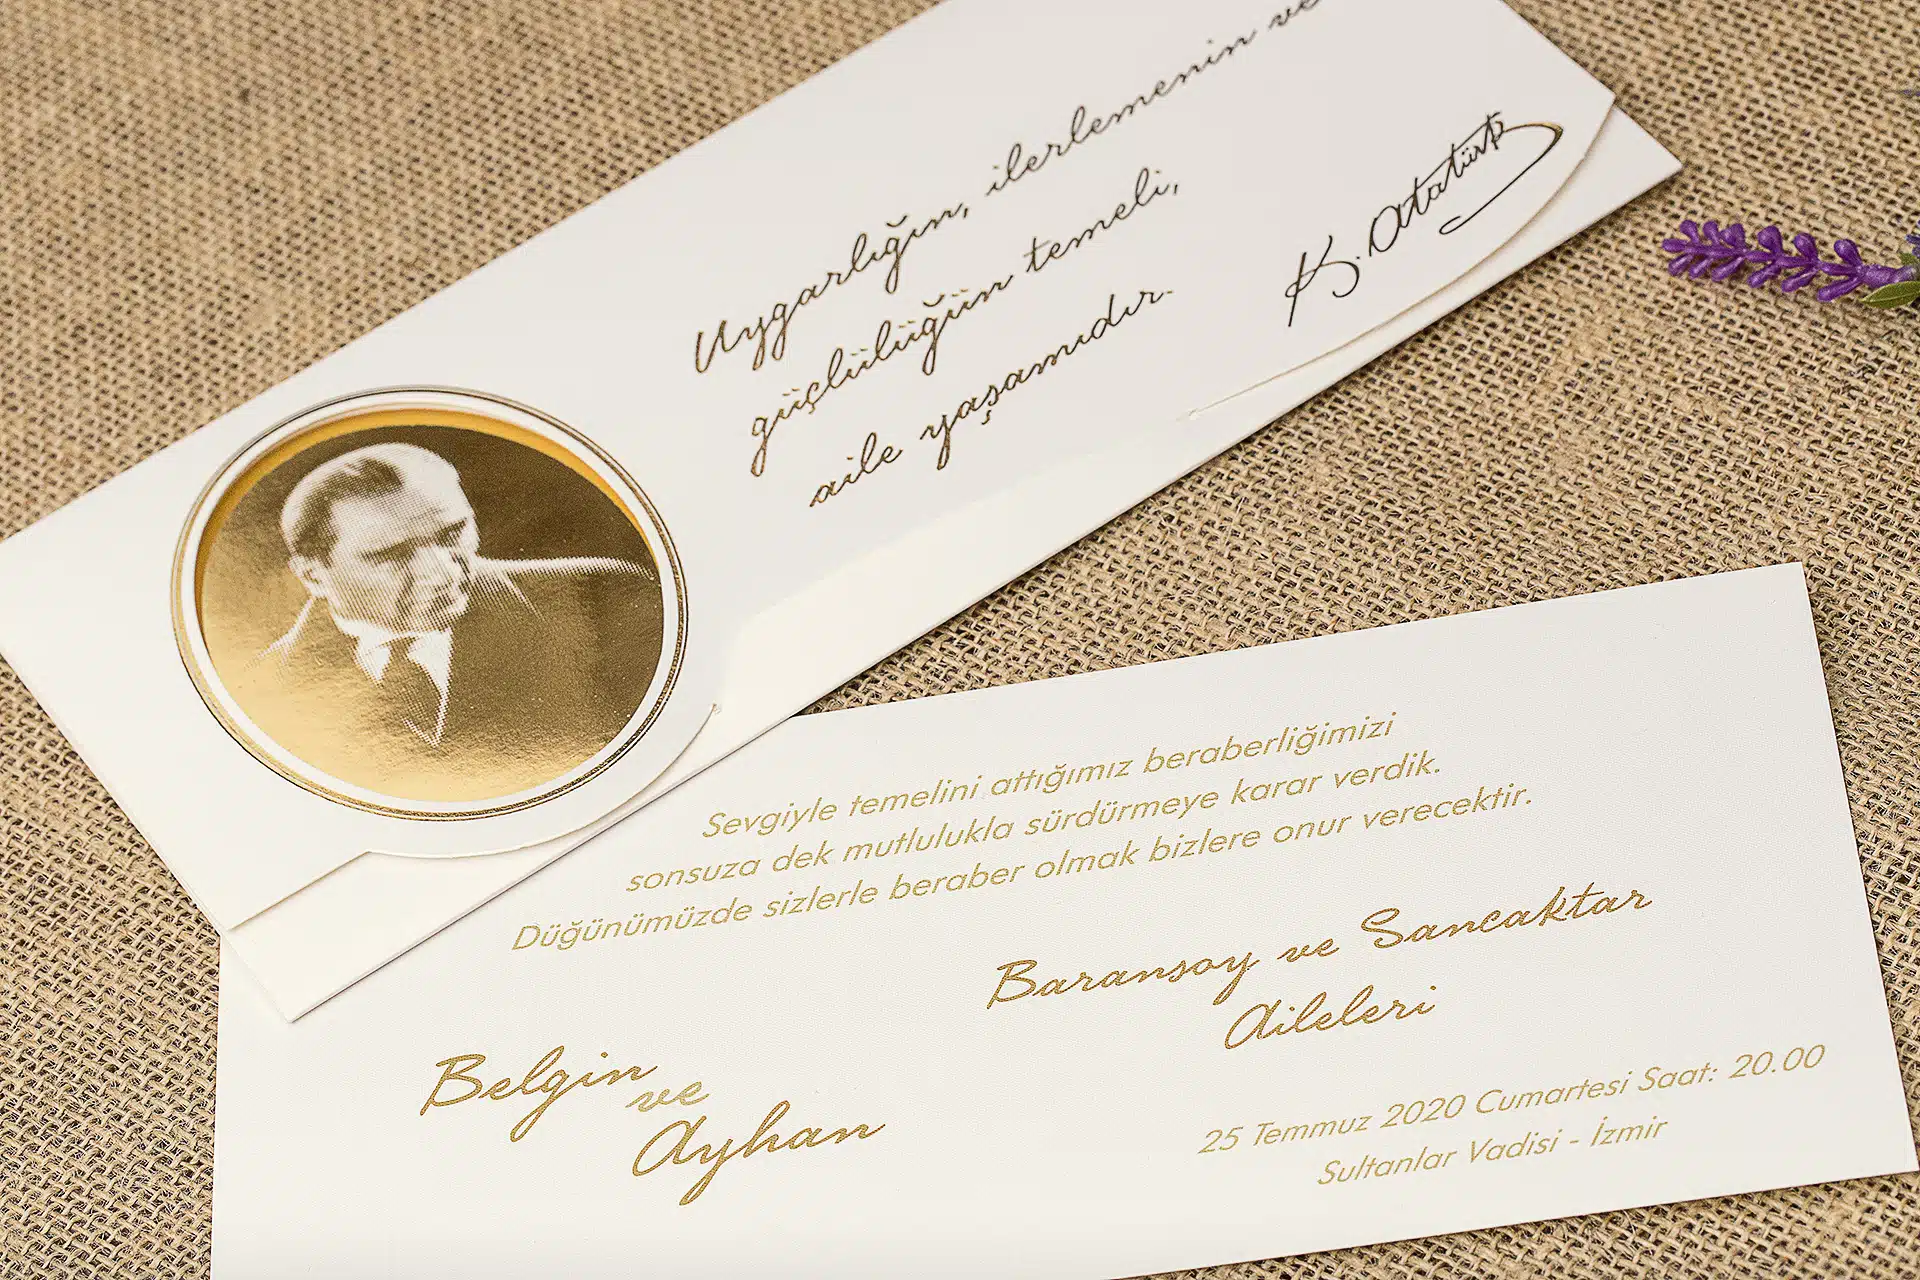 Uygarlığın, ilerlemenin ve
güçlülüğün temeli,
aile yaşamıdır.
K. Atatürk
Sevgiyle temelini attığımız beraberliğimizi
sonsuza dek mutlulukla sürdürmeye karar verdik.
Düğünümüzde sizlerle beraber olmak bizlere onur verecektir.
Baransoy ve Sancaktar
Aileleri
Belgin
ve
Ayhan
25 Temmuz 2020 Cumartesi Saat: 20.00
Sultanlar Vadisi - İzmir